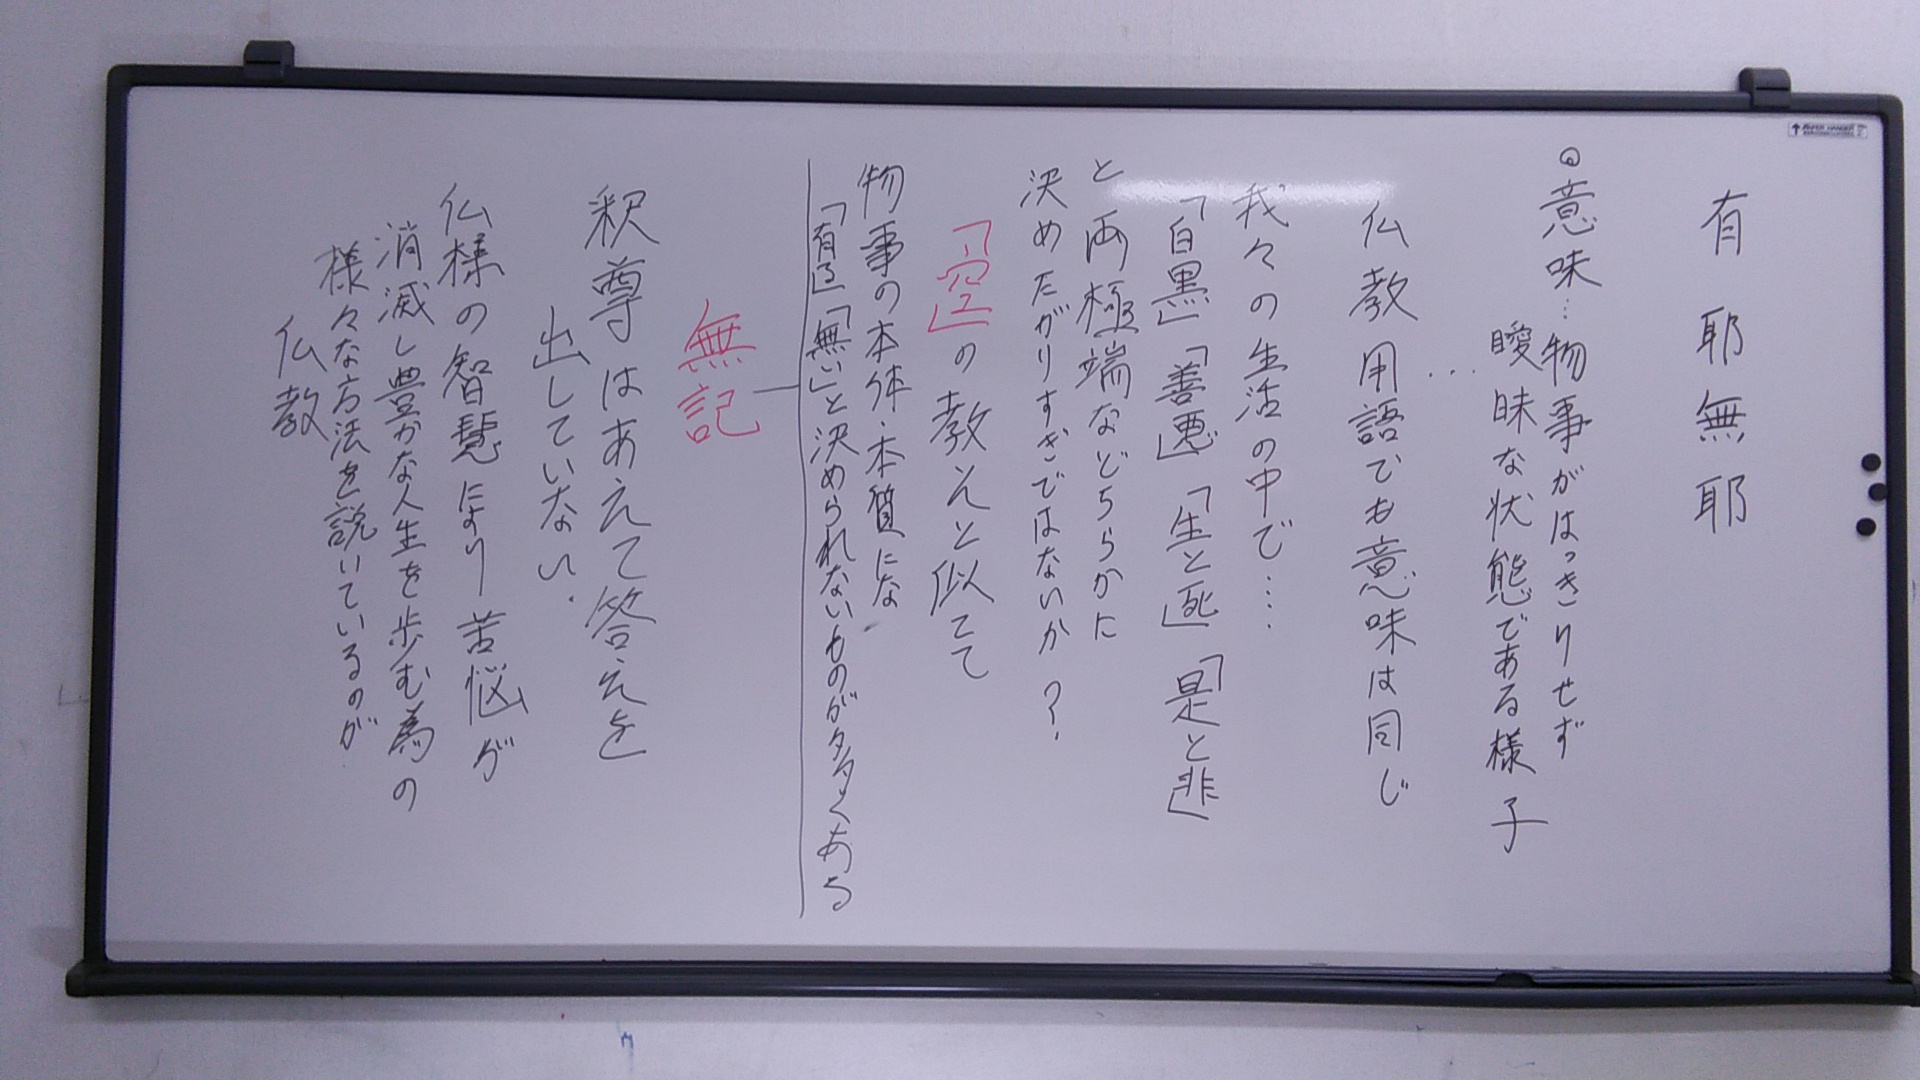 有耶無耶
◎意味…物事がはっきりせず
曖昧な状態である様子
…
仏教用語でも意味は同じ
我々の生活の中で……
「白黒」「善悪」「生と死」「是と非」
と両極端などちらかに
決めたがりすぎではないか？
「空」の教えと似てて
物事の本体・本質にな
「有る」「無い」と決められないものが多々くある
無記
釈尊はあえて答えを
出していない．
仏様の智慧により苦悩が
消滅し豊かな人生を歩む為の
様々な方法を説いているのが
仏教
PAPER HANGER